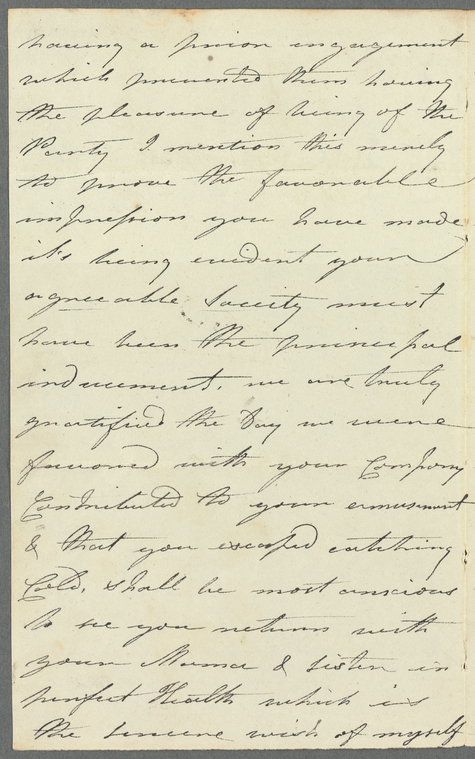 having a prior engagement
which prevented them having
the pleasure of being of the
Party I mention this merely
to prove the favorable
impression you have made
it's being evident your
agreeable Society must
have been the principal
inducement. we are truly
gratified the Day we were
favored with your Company
Contributed to your amusement
& that you escaped catching
Cold, shall be most anxious
to see you return with
your Mama & Sister in
perfect Health which is
the sincere wish of myself